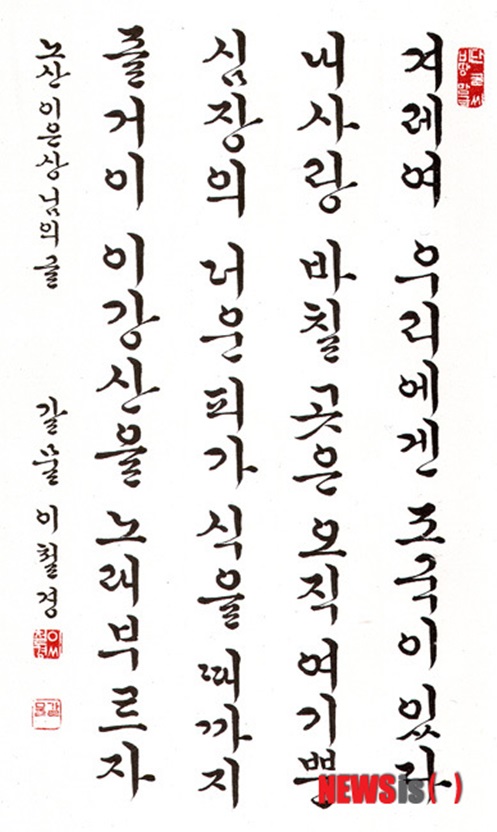 겨레여 우리에겐 조국이 있다
내사랑 바칠 곳은 오직 여기뿐
심장의 더운 피가 식을 때까지
즐거이 이강산을 노래부르자
노산 이은상님의 글
갈물 이철경
갈물
NEWSis( )